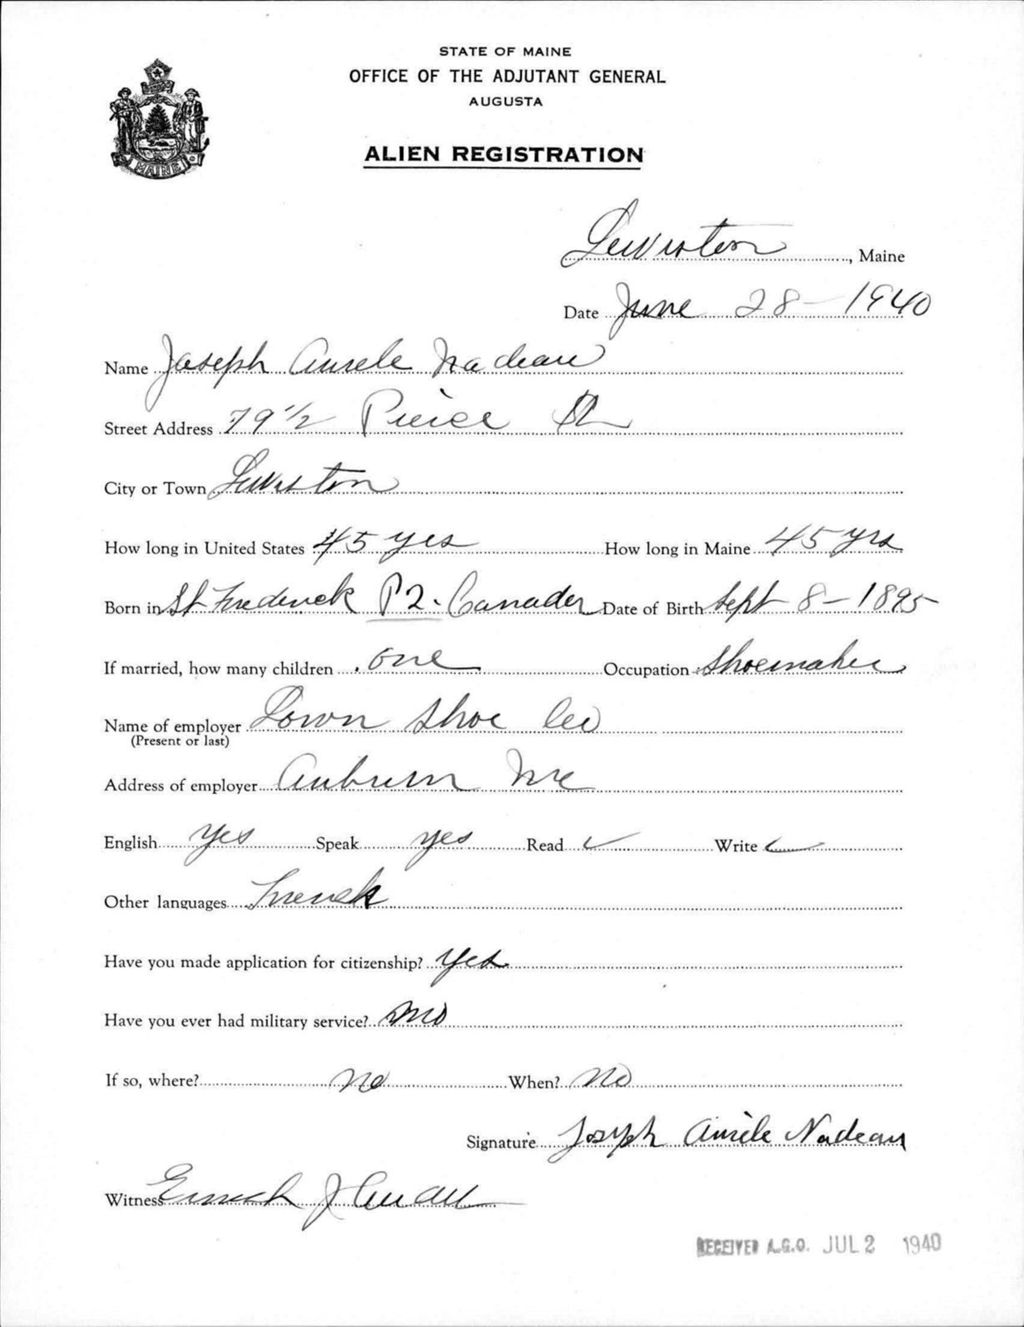 STATE OF MAINE
OFFICE OF THE ADJUTANT GENERAL
AUGUSTA
ALIEN REGISTRATION
MAINE
Lewiston, Maine
Date June 28 - 1940
Name Joseph Aurele Nadeau
Street Address 79 1/2 Pierce St
City or Town Lewiston
How long in United States 45 yrs How long in Maine 45 yrs
Born in St Frederick P2. Canader Date of Birth Sept 8 - 1895
If married, how many children one Occupation Shoemaker
Name of employer Lown Shoe Co
(Present or last)
Address of employer Auburn Me
English yes Speak yes Read ✓ Write ✓
Other languages French
Have you made application for citizenship? Yes
Have you ever had military service? no
If so, where? no When? no
Signature Joseph Aurele Nadeau
Witness J
RECEIVED A.G.O. JUL 2 1940